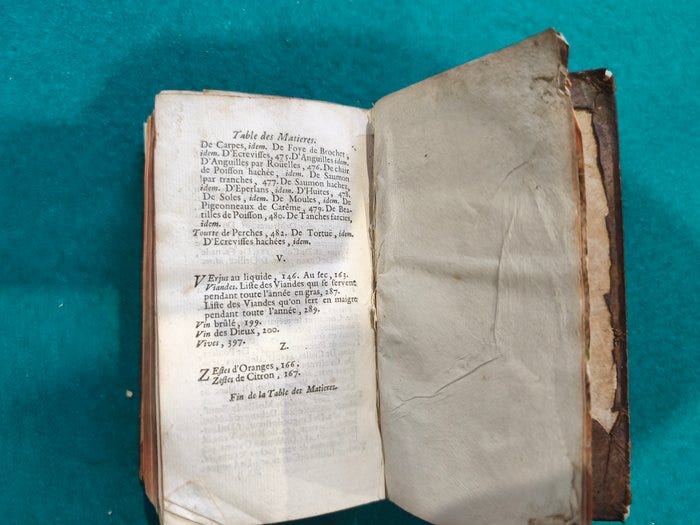 Table des Matieres.
De Carpes, idem. De Foye de Brochet,
idem. D'Ecrevisses, 475. D'Anguilles idem.
D'Anguilles par Rouelles, 476. De chair
de Poisson hachée, idem. De Saumon
par tranches, 477. De Saumon haché,
idem. D'Eperlans, idem. D'Huitres, 478.
De Soles, idem. De Moules, idem. De
Pigeonneaux de Carême, 479. De Bea-
tilles de Poisson, 480. De Tanches farcies,
idem.
Tourte de Perches, 482. De Tortuë, idem.
D'Ecrevisses hachées, idem.
V.
VErjus au liquide, 146. Au sec, 163.
Viandes. Liste des Viandes qui se servent
pendant toute l'année en gras, 287.
Liste des Viandes qu'on sert en maigre
pendant toute l'année, 289.
Vin brûlé, 199.
Vin des Dieux, 200.
Vives, 397.
Z.
ZEstes d'Oranges, 166.
Zestes de Citron, 167.
Fin de la Table des Matieres.